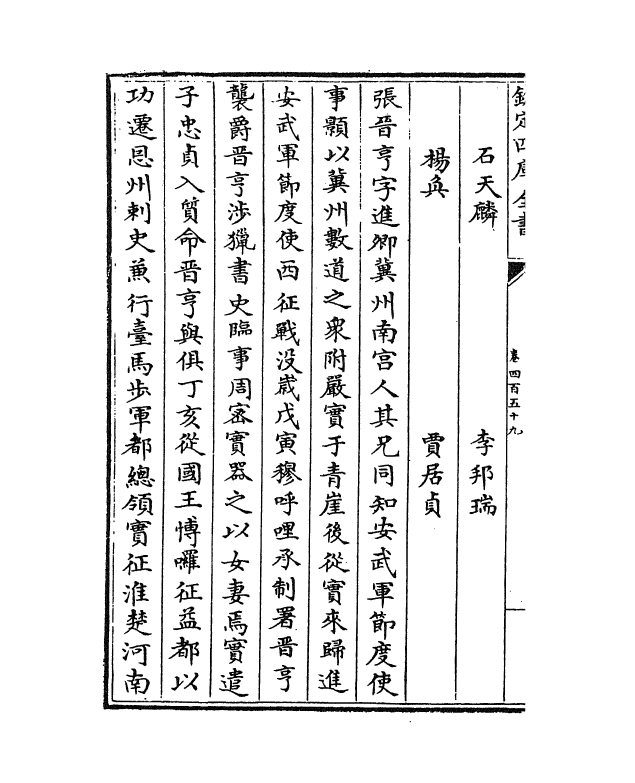 欽定四庫全書
卷四百五十九
石天麟 李邦瑞
楊奐 賈居貞
張晉亨字進卿冀州南宮人其兄同知安武軍節度使
事顥以冀州數道之衆附嚴實于青崖後從實來歸進
安武軍節度使西征戰没嵗戊寅穆呼哩承制署晉亨
襲爵晉亨涉獵書史臨事周密實器之以女妻焉實遣
子忠貞入質命晉亨與俱丁亥從國王博囉征益都以
功遷恩州刺史兼行臺馬步軍都總領實征淮楚河南